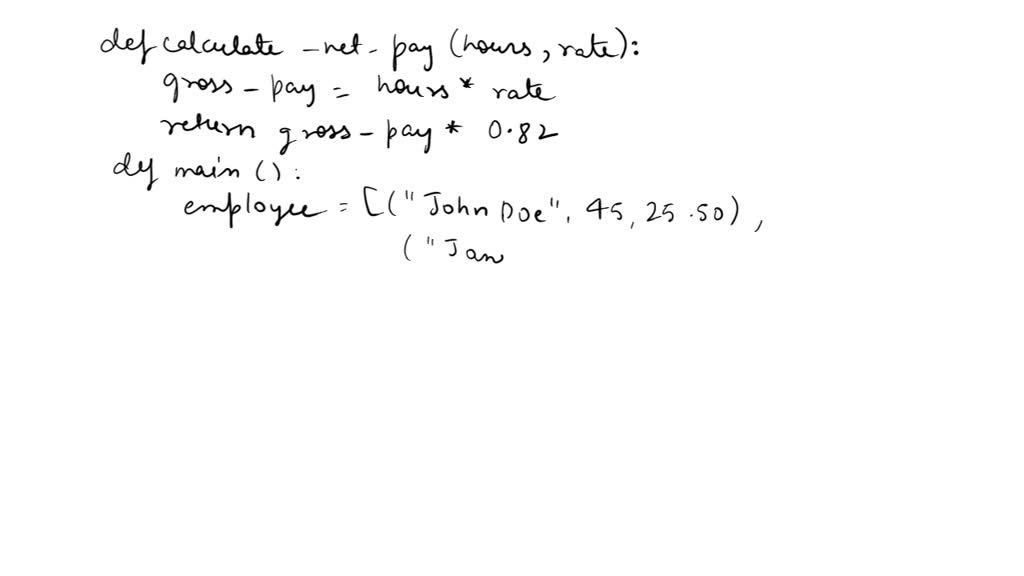 def calculate-net-pay (hours, rate):
gross-pay = hours * rate
return gross-pay * 0.82
def main ():
employee = [("John Doe", 45, 25.50),
("Jan